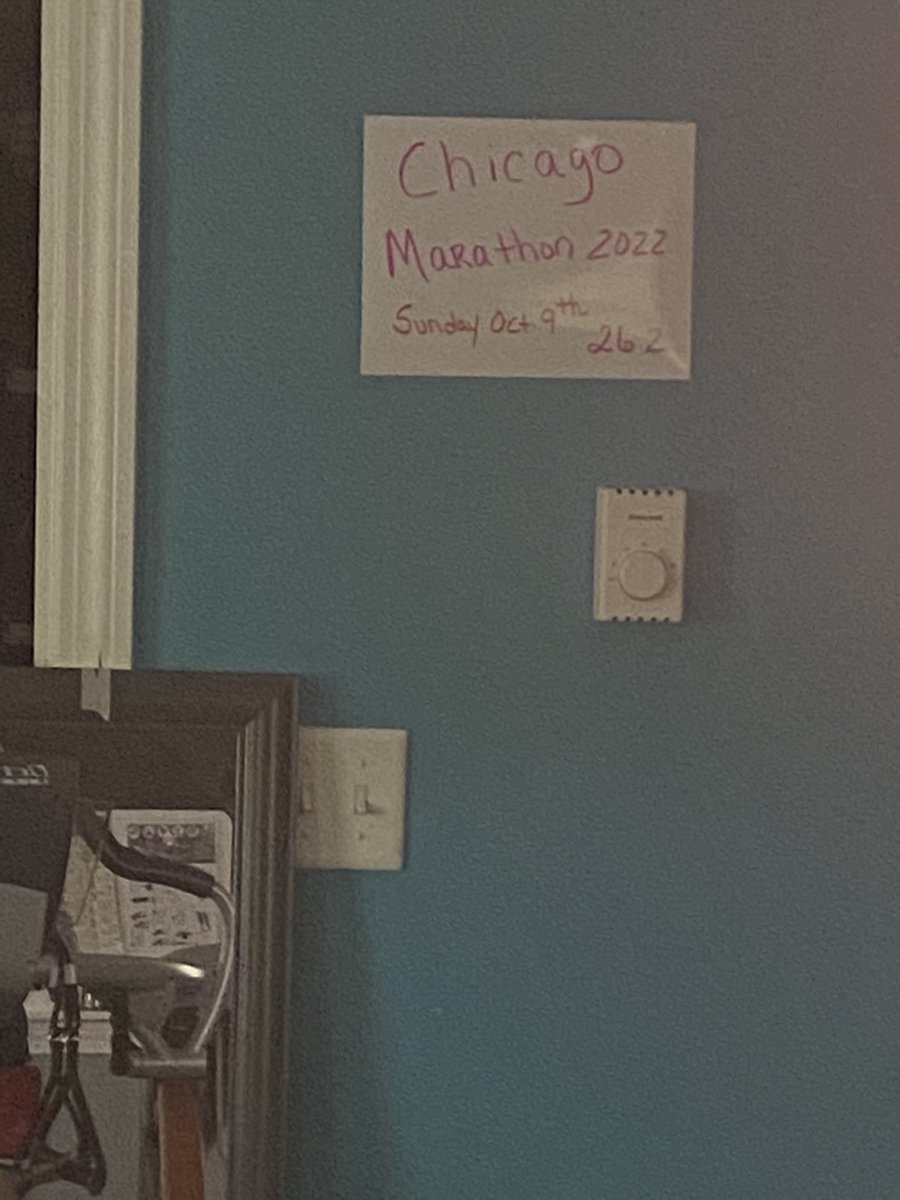 Chicago
Marathon 2022
Sunday Oct 9th
26.2